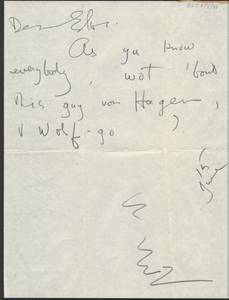 Dear
As yu know
everybody, wot 'bout
this guy von Hagen,
& Wolf-go